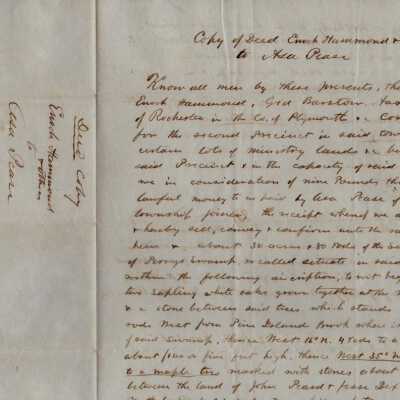 Copy of Deed Enoch Hammond &
to Asa Pease
Know all men by these presents, tha
Enoch Hammond, Gid Barstow, Jas
of Rochester in the Co. of Plymouth & Com
for the second Precinct in said town
certain lots of ministry lands & be
said Precinct & in the capacity of said
we in consideration of nine Pounds th
lawful money to us paid by Asa Pease of
township joining the receipt whereof we a
& hereby sell, convey & confirm unto the sa
heirs & about 30 acres & 80 Rods of the Se
of Swamp so called situate in said
within the following discription, to wit beg
two sapling white oaks grown together at the
& a stone between said trees which stands
rods West from Pine Island Brook where i
said Swamp, thence West 16° N. 4 rods to a
about four or five feet high. thence West 35° N
to a maple tree marked with stones about
between the land of John Pease & Jesse Dex
Deed Copy
Enoch Hammond
& others
to
Asa Pease